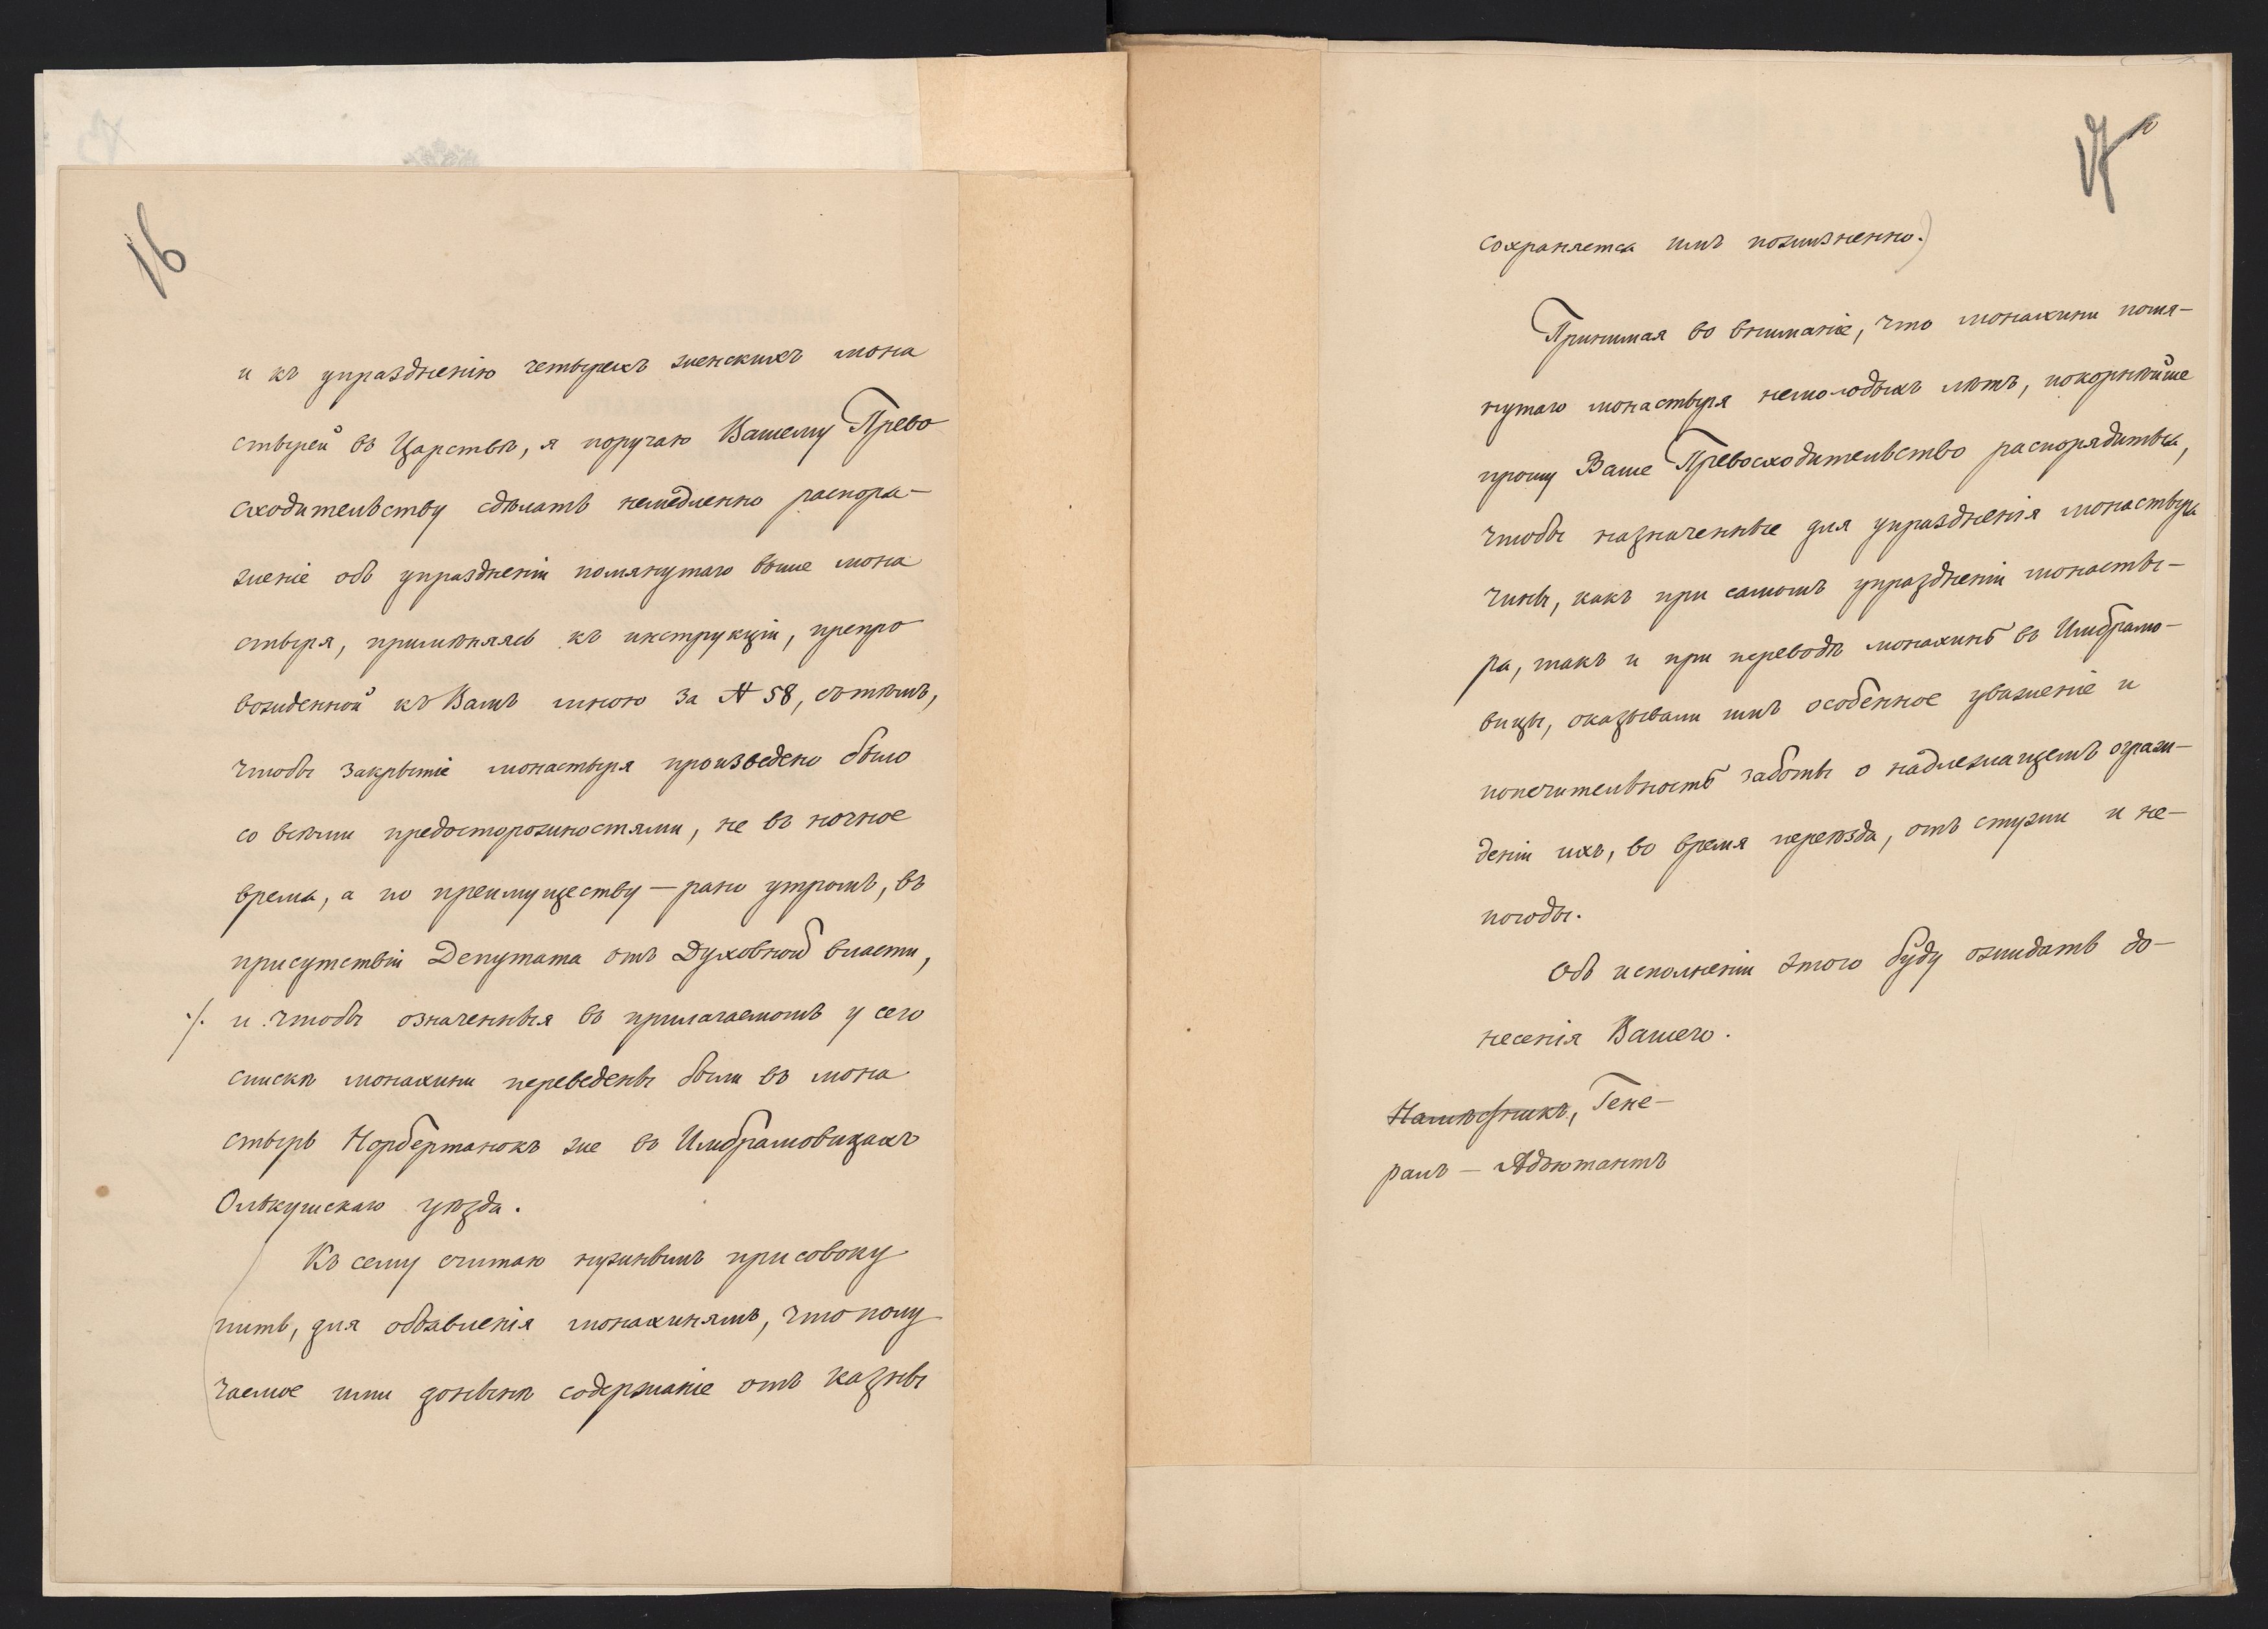 16
и къ упраздненію четырехъ женскихъ мона
стырей въ Царствѣ, я поручаю Вашему Прево
сходительству сдѣлать немедленно распоря-
женіе объ упраздненіи помянутаго выше мона
стыря, примѣняясь къ инструкціи, препро
вожденной къ Вамъ мною за № 58, съ тѣмъ,
чтобы закрытіе монастыря произведено было
со всѣми предосторожностями, не въ ночное
время, а по преимуществу — рано утромъ, въ
присутствіи Депутата отъ Духовной власти,
·/. и чтобы означенныя въ прилагаемомъ у сего
спискѣ монахини переведены были въ мона
стырь Норбертанокъ же въ Имбрамовицахъ
Олькушскаго уѣзда.
(Къ сему считаю нужнымъ присовоку
пить, для объявленія монахинямъ, что полу
чаемое ими донынѣ содержаніе отъ казны
17
сохраняется имъ пожизненно.)
Принимая во вниманіе, что монахини помя-
нутаго монастыря немолодыхъ лѣтъ, покорнѣйше
прошу Ваше Превосходительство распорядиться,
чтобы назначенные для упраздненія монастыря
чины, какъ при самомъ упраздненіи монасты-
ра, такъ и при переводѣ монахинь въ Имбрамо-
вицы, оказывали имъ особенное уваженіе и
попечительность заботы о надлежащемъ огражи-
деніи ихъ, во время переѣзда, отъ стужи и не-
погоды.
Объ исполненіи этого буду ожидать до-
несенія Вашего.
Намѣстникъ, Гене-
ралъ — Адъютантъ